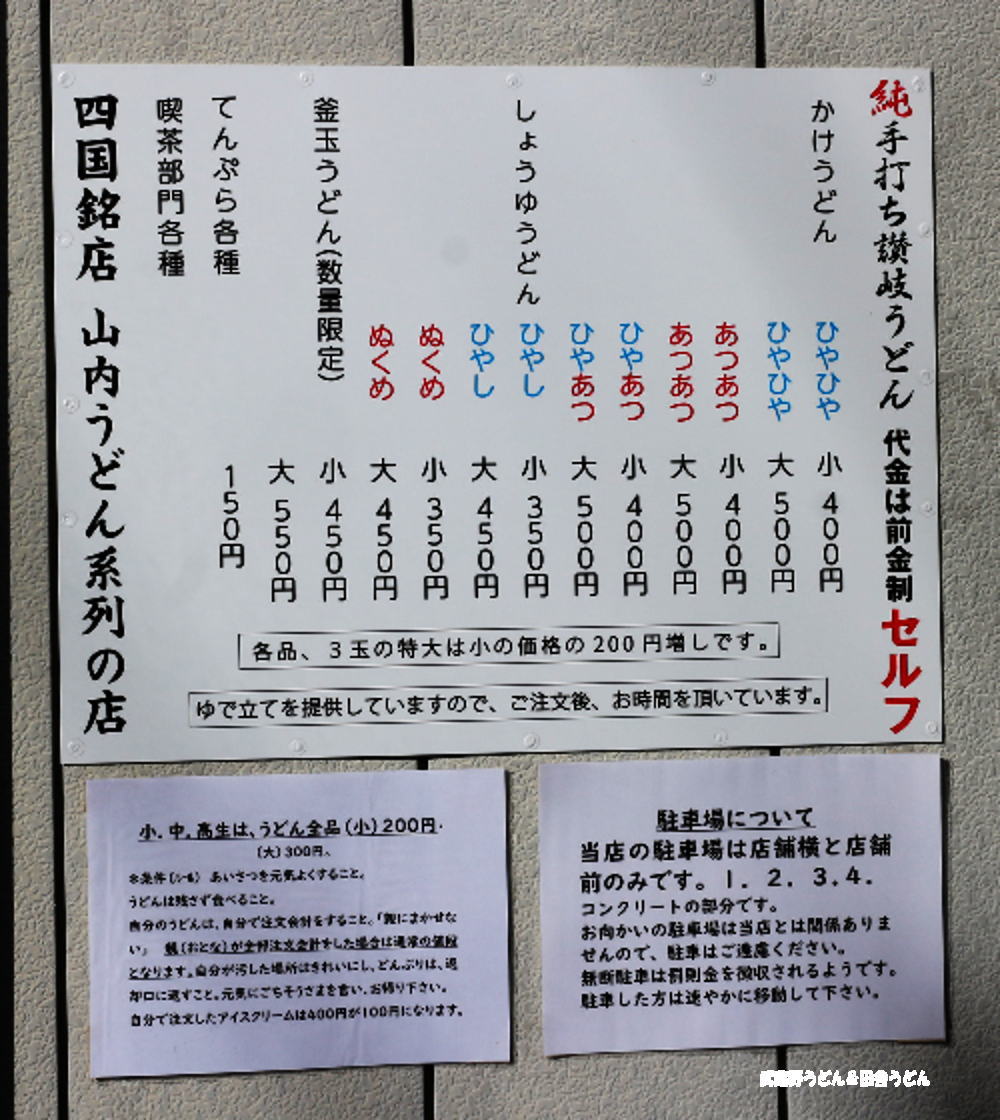 純手打ち讃岐うどん 代金は前金制 セルフ
かけうどん
ひやひや 小 400円
ひやひや 大 500円
あつあつ 小 400円
あつあつ 大 500円
ひやあつ 小 400円
ひやあつ 大 500円
しょうゆうどん
ひやし 小 350円
ひやし 大 450円
ぬくめ 小 350円
ぬくめ 大 450円
釜玉うどん(数量限定)
小 450円
大 550円
てんぷら各種 150円
喫茶部門各種
四国銘店 山内うどん系列の店
各品、3玉の特大は小の価格の200円増しです。
ゆで立てを提供していますので、ご注文後、お時間を頂いています。
小.中.高生は、うどん全品(小)200円.
(大)300円、
※条件(ルール) あいさつを元気よくすること。
うどんは残さず食べること。
自分のうどんは、自分で注文会計をすること。「親にまかせな
い」 親(おとな)が全部注文会計をした場合は通常の値段
となります。自分が汚した場所はきれいにし、どんぶりは、返
却口に返すこと。元気にごちそうさまを言い、お帰り下さい。
自分で注文したアイスクリームは400円が100円になります。
駐車場について
当店の駐車場は店舗横と店舗
前のみです。1.2.3.4.
コンクリートの部分です。
お向かいの駐車場は当店とは関係ありま
せんので、駐車はご遠慮ください。
無断駐車は罰則金を徴収されるようです。
駐車した方は速やかに移動して下さい。
武蔵野うどん&田舎うどん